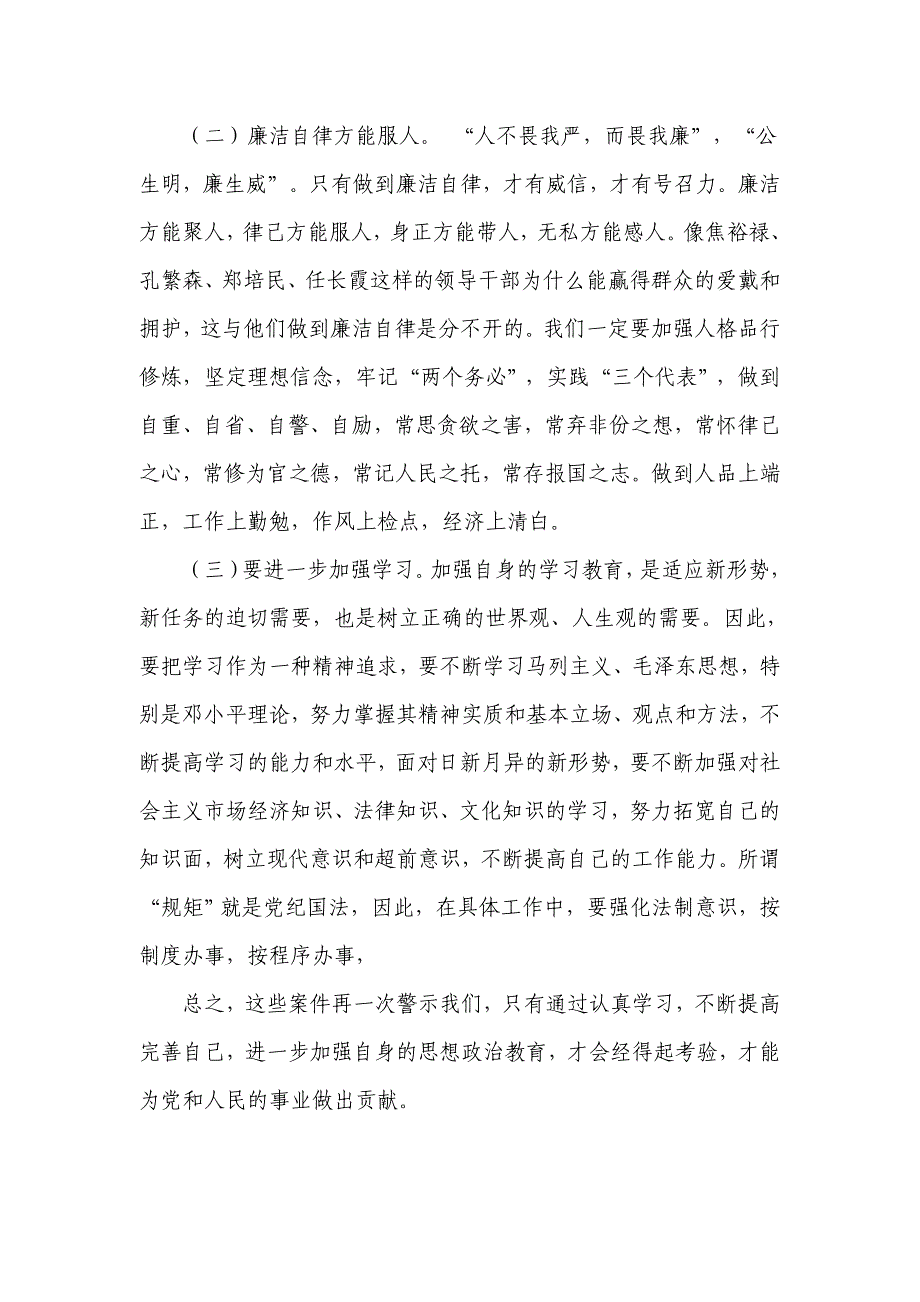 （二）廉洁自律方能服人。 “人不畏我严，而畏我廉”，“公
生明，廉生威”。只有做到廉洁自律，才有威信，才有号召力。廉洁
方能聚人，律己方能服人，身正方能带人，无私方能感人。像焦裕禄、
孔繁森、郑培民、任长霞这样的领导干部为什么能赢得群众的爱戴和
拥护，这与他们做到廉洁自律是分不开的。我们一定要加强人格品行
修炼，坚定理想信念，牢记“两个务必”，实践“三个代表”，做到
自重、自省、自警、自励，常思贪欲之害，常弃非份之想，常怀律己
之心，常修为官之德，常记人民之托，常存报国之志。做到人品上端
正，工作上勤勉，作风上检点，经济上清白。
（三）要进一步加强学习。加强自身的学习教育，是适应新形势，
新任务的迫切需要，也是树立正确的世界观、人生观的需要。因此，
要把学习作为一种精神追求，要不断学习马列主义、毛泽东思想，特
别是邓小平理论，努力掌握其精神实质和基本立场、观点和方法，不
断提高学习的能力和水平，面对日新月异的新形势，要不断加强对社
会主义市场经济知识、法律知识、文化知识的学习，努力拓宽自己的
知识面，树立现代意识和超前意识，不断提高自己的工作能力。所谓
“规矩”就是党纪国法，因此，在具体工作中，要强化法制意识，按
制度办事，按程序办事，
总之，这些案件再一次警示我们，只有通过认真学习，不断提高
完善自己，进一步加强自身的思想政治教育，才会经得起考验，才能
为党和人民的事业做出贡献。